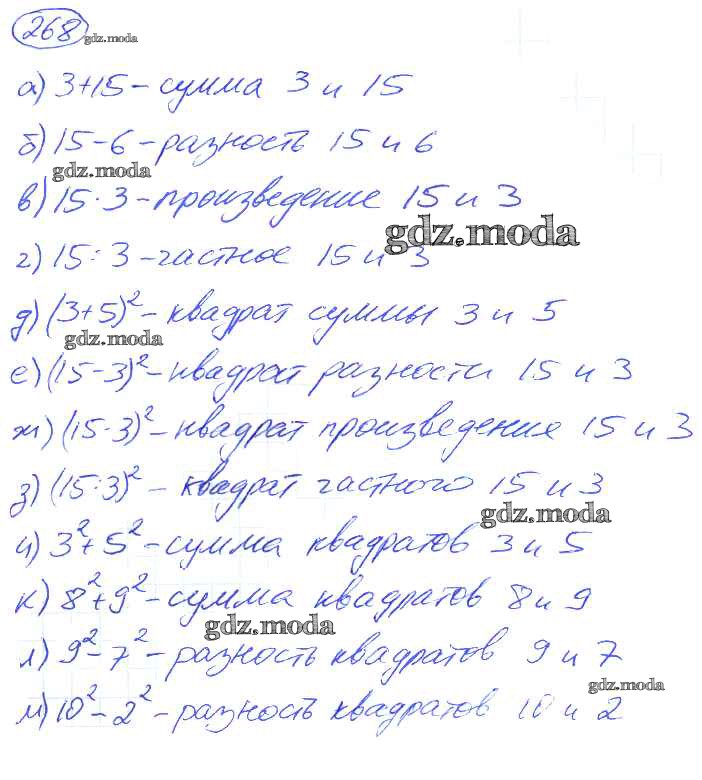 268 gdz.moda
а) 3+15 - сумма 3 и 15
б) 15-6 - разность 15 и 6
gdz.moda
в) 15·3 - произведение 15 и 3
gdz.moda
г) 15:3 - частное 15 и 3
д) (3+5)² - квадрат суммы 3 и 5
gdz.moda
е) (15-3)² - квадрат разности 15 и 3
ж) (15·3)² - квадрат произведения 15 и 3
з) (15:3)² - квадрат частного 15 и 3
gdz.moda
и) 3²+5² - сумма квадратов 3 и 5
к) 8²+9² - сумма квадратов 8 и 9
gdz.moda
л) 9²-7² - разность квадратов 9 и 7
gdz.moda
м) 10²-2² - разность квадратов 10 и 2